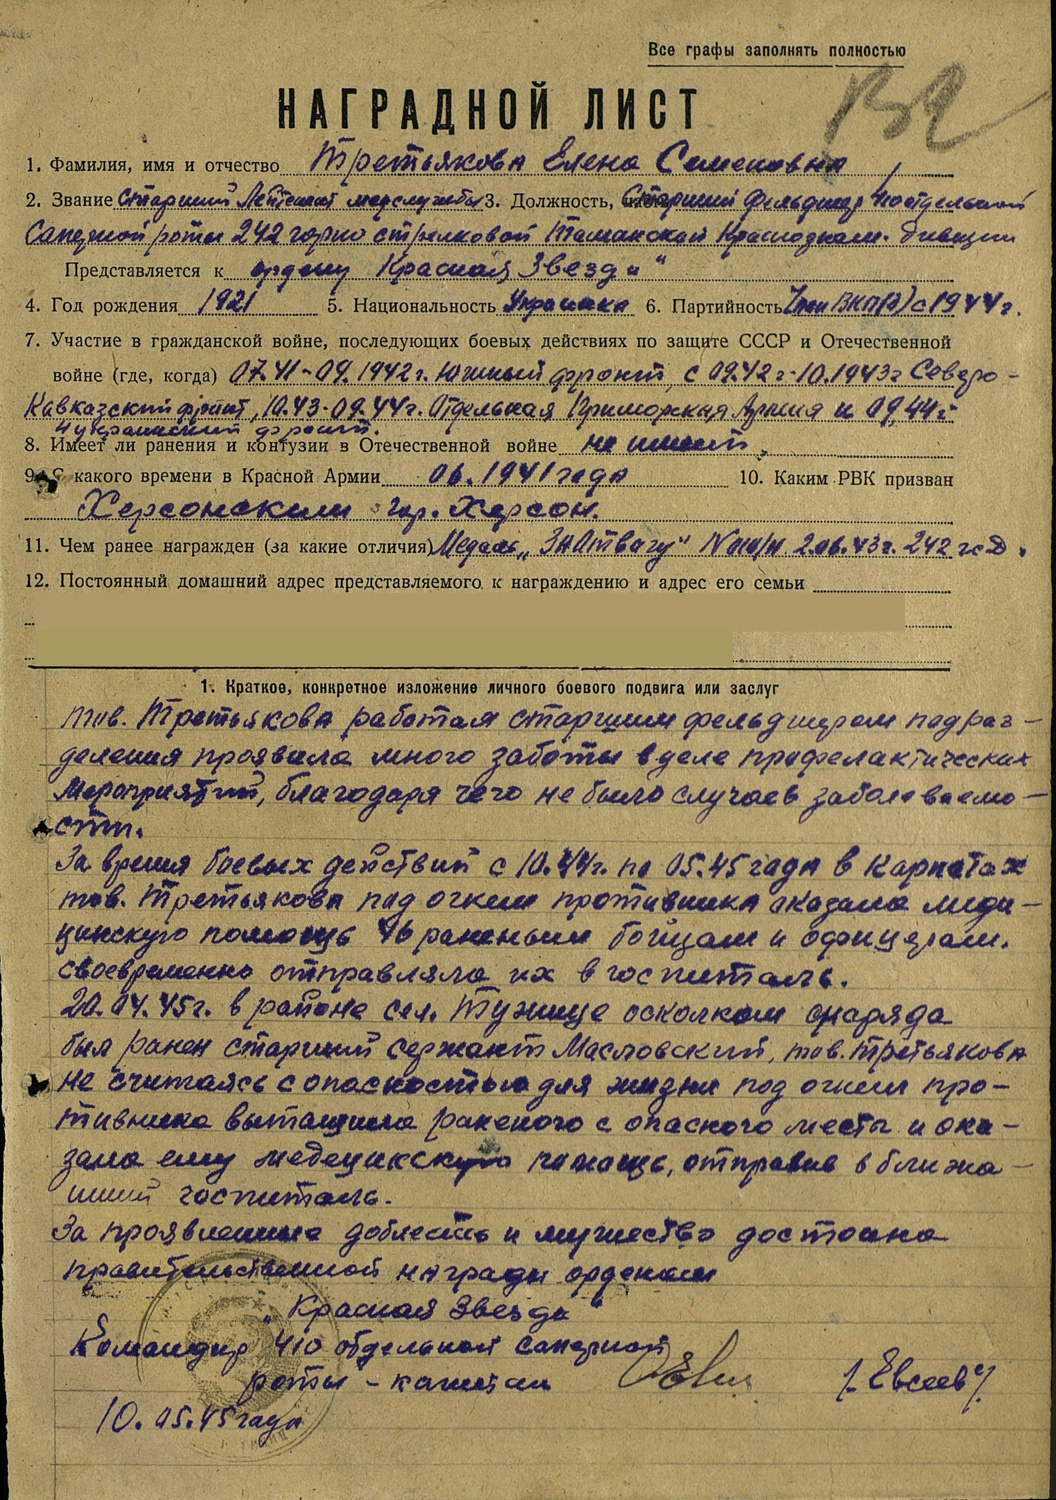 Все графы заполнять полностью
НАГРАДНОЙ ЛИСТ
1. Фамилия, имя и отчество Третьякова Елена Семеновна
2. Звание Старший Лейтенант медслужбы 3. Должность, Старший Фельдшер отдельной
Саперной роты 242 горно стрелковой Таманской Краснознам. дивизии
Представляется к ордену Красная Звезда"
4. Год рождения 1921 5. Национальность Украинка 6. Партийность Член ВКП(б) с 1944г.
7. Участие в гражданской войне, последующих боевых действиях по защите СССР и Отечественной
войне (где, когда) 07.41-09.1942г. Южный фронт, с 09.42г-10.1943г Северо-
Кавказский фронт, 10.43-09.44г. Отдельная Приморская Армия и 09.44г-
4 украинский фронт.
8. Имеет ли ранения и контузии в Отечественной войне не имеет.
9. С какого времени в Красной Армии 06.1941 года 10. Каким РВК призван
Херсонским гор. Херсон.
11. Чем ранее награжден (за какие отличия) Медаль "За Отвагу" 2.06.43г. 242 гсд.
12. Постоянный домашний адрес представляемого к награждению и адрес его семьи
1. Краткое, конкретное изложение личного боевого подвига или заслуг
тов. Третьякова работая старшим фельдшером подраз-
деления проявила много заботы в деле профелактических
мероприятий, благодаря чего не было случаев заболеваемо-
сти.
За время боевых действий с 10.44г. по 05.45 года в Карпатах
тов. Третьякова под огнем противника оказала меди-
цинскую помощь 46 раненым бойцам и офицерам.
своевременно отправляла их в госпиталь.
20.04.45г. в районе сел. Тужице осколком снаряда
был ранен старший сержант Масловский, тов. Третьякова
не считаясь с опасностью для жизни под огнем про-
тивника вытащила раненого с опасного места и ока-
зала ему медецинскую помощь, отправив в ближа-
йший госпиталь.
За проявленные доблесть и мужество достойна
правительственной награды орденом
"Красная Звезда"
Командир 410 отдельной саперной
роты - капитан /. Евсеев/
10.05.45 года